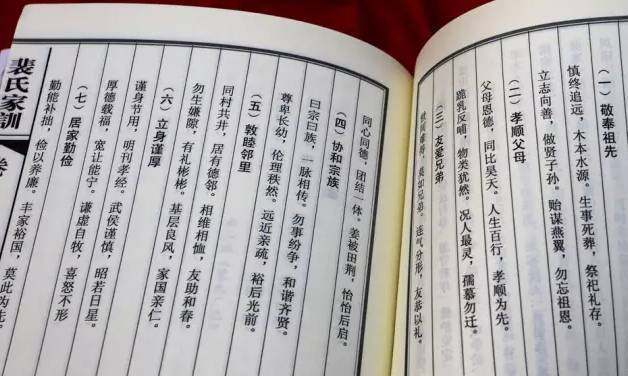 (一)敬奉祖先
慎终追远,木本水源。生事死葬,祭祀礼存。
立志向善,做贤子孙。贻谋燕翼,勿忘祖恩。
(二)孝顺父母
父母恩德,同比昊天。人生百行,孝顺为先。
跪乳反哺,物类犹然。况人最灵,孺慕勿迁。
(三)友爱兄弟
世间难得,莫如兄弟。连气分形,友恭以礼。
同心同德,团结一体。姜被田荆,怡怡后启。
(四)协和宗族
曰宗曰族,一脉相传。勿事纷争,和谐齐贤。
尊卑长幼,伦理秩然。远近亲疏,裕后光前。
(五)敦睦邻里
同村共井,居有德邻。相维相恤,友助和春。
勿生嫌隙,有礼彬彬。基层良风,家国亲仁。
(六)立身谨厚
谨身节用,明刊孝经。武侯谨慎,昭若日星。
厚德载福,宽让能宁。谦虚自牧,喜怒不形
(七)居家勤俭
勤能补拙,俭以养廉。丰家裕国,莫此为先。
裴氏家训